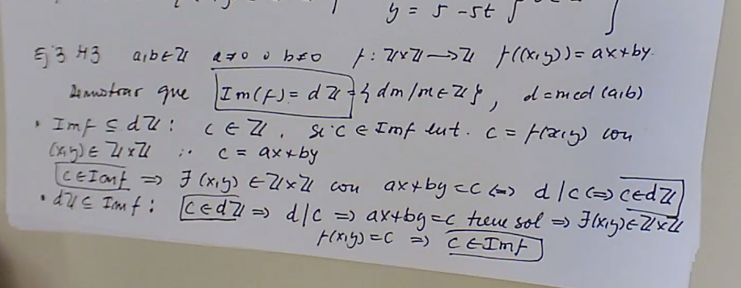 y = 5 - 5t
Ej 3 H3 a,b∈ℤ a≠0 o b≠0 f: ℤ×ℤ→ℤ f((x,y)) = ax+by
Demostrar que Im(f) = dℤ = {dm/m∈ℤ}, d = mcd(a,b)
• Imf ⊆ dℤ: c∈ℤ. si c∈Imf ent. c = f(x,y) con
(x,y)∈ℤ×ℤ ∴ c = ax+by
c∈Imf ⇒ ∃(x,y)∈ℤ×ℤ con ax+by=c ⇔ d/c ⇔ c∈dℤ
• dℤ ⊆ Imf: c∈dℤ ⇒ d/c ⇒ ax+by=c tiene sol ⇒ ∃(x,y)∈ℤ×ℤ
f(x,y)=c ⇒ c∈Imf